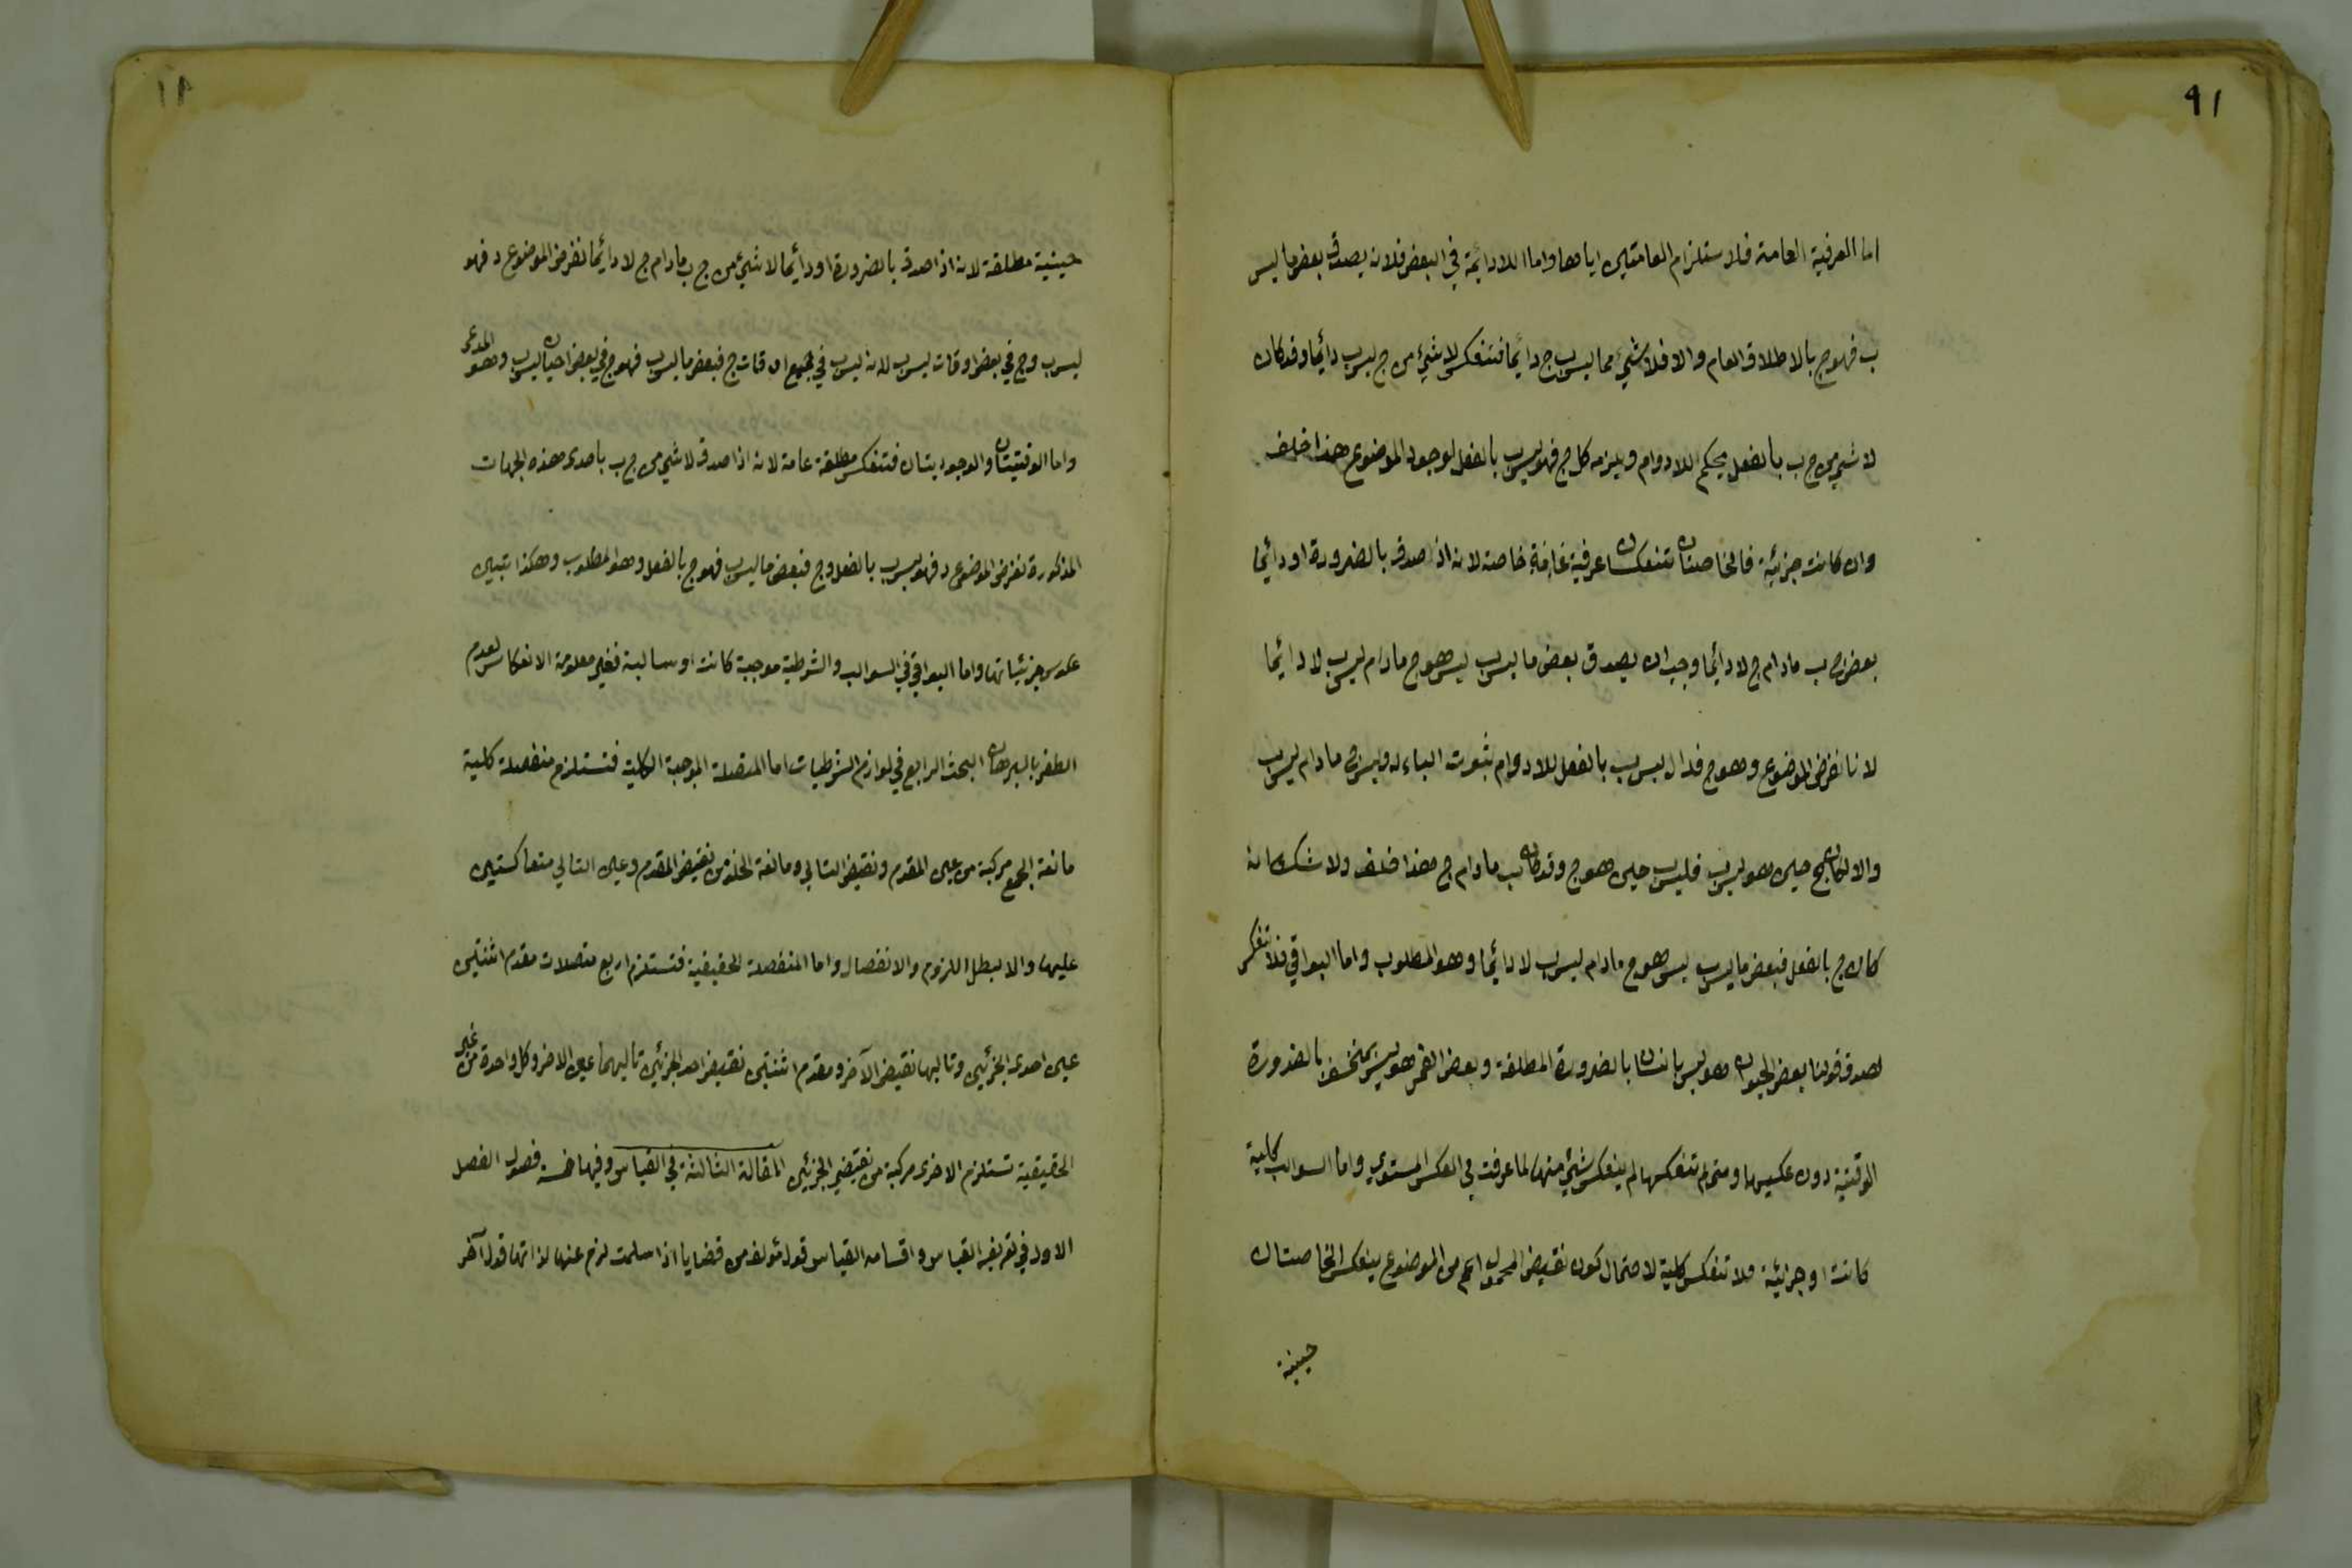 ٩١
اما العرفية العامة فلاستلزام العامتين اياها واما اللادائمة في البعض فلانه يصدق بعض ما ليس
ب فهو ج بالاطلاق العام والا فلا شيء مما ليس ب ج دائما فتنعكس لا شيء من ج ليس ب دائما وقد كان
لا شيء من ج ب بالفعل بحكم اللادوام ويلزمه كل ج فهو ليس ب بالفعل لوجود الموضوع هذا خلف
وان كانت جزئية فالخاصتان تنعكسان عرفية خاصة لانه اذا صدق بالضرورة او دائما
بعض ج ب ما دام ج لا دائما وجب ان يصدق بعض ما ليس ب ليس هو ج ما دام ليس ب لا دائما
لانا نفرض الموضوع وهو ج فدال ليس ب بالفعل للادوام ثبوت الباء له وليس ج ما دام ليس ب
والا لكان ج حين هو ليس ب فليس ب حين هو ج وقد كان ب ما دام ج هذا خلف ولا شك انه
كان ج بالفعل فبعض ما ليس ب ليس هو ج ما دام ليس ب لا دائما وهو المطلوب واما البواقي فلا تنعكس
لصدق قولنا بعض الحيوان هو ليس بانسان بالضرورة المطلقة وبعض القمر هو ليس بمنخسف بالضرورة
الوقتية دون عكسيهما ومتى لم تنعكسا لم ينعكس شيء منهما لما عرفت في العكس المستوي واما السوالب كلية
كانت او جزئية فلا تنعكس كلية لاحتمال كون نقيض المحمول اعم من الموضوع ينعكس الخاصتان
حينية
حينية مطلقة لانه اذا صدق بالضرورة او دائما لا شيء من ج ب ما دام ج لا دائما نفرض الموضوع د فهو
ليس ب وج في بعض اوقات ليس ب لانه ليس ب في جميع اوقات ج فبعض ما ليس ب فهو ج في بعض احيان ليس ب وهو المدعى
واما الوقتيتان والوجوديتان فتنعكس مطلقة عامة لانه اذا صدق لا شيء من ج ب باحدى هذه الجهات
المذكورة نفرض الموضوع د فهو ليس ب بالفعل وج فبعض ما ليس ب فهو ج بالفعل وهو المطلوب وهكذا تبين
عكوس جزئياتها واما البواقي في السوالب والشرطية موجبة كانت او سالبة فغير معلومة الانعكاس لعدم
الظفر بالبرهان البحث الرابع في لوازم الشرطيات اما المتصلة الموجبة الكلية فتستلزم منفصلة كلية
مانعة الجمع مركبة من عين المقدم ونقيض التالي ومانعة الخلو من نقيض المقدم وعين التالي متعاكستين
عليها والا لبطل اللزوم والانفصال واما المنفصلة الحقيقية فتستلزم اربع متصلات مقدم اثنتين
عين احدى الجزئين وتاليها نقيض الآخر ومقدم اثنتين نقيض احد الجزئين تاليهما عين الاخر وكل واحدة من غير
الحقيقية تستلزم الاخرى مركبة من نقيضي الجزئين المقالة الثالثة في القياس وفيها خمسة فصول الفصل
الاول في تعريف القياس واقسامه القياس قول مؤلف من قضايا اذا سلمت لزم عنها لذاتها قول آخر